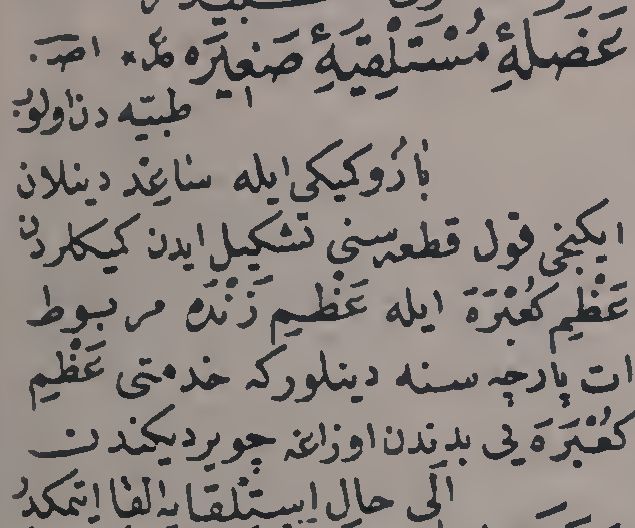 عَضَلَۀِ مُسْتَلْقِيَۀِ صَغِيرَه مذ٭ اصـ.
طبيّه دن اولوب
بازُو كيكى ايله ساعد دينلان
ايكنجى قول قطعه سنى تشكيل ايدن كيكلردن
عَظْمِ كُعْبُرَهَ ايله عَظْمِ زَنْدَه مربوط
ات پارچه سنه دينلور كه خدمتى عَظْمِ
كُعْبُرَهَ يى بدندن اوزاغه چويرديكندن
الَى حال اِستلقا يه القا ايتمكدر